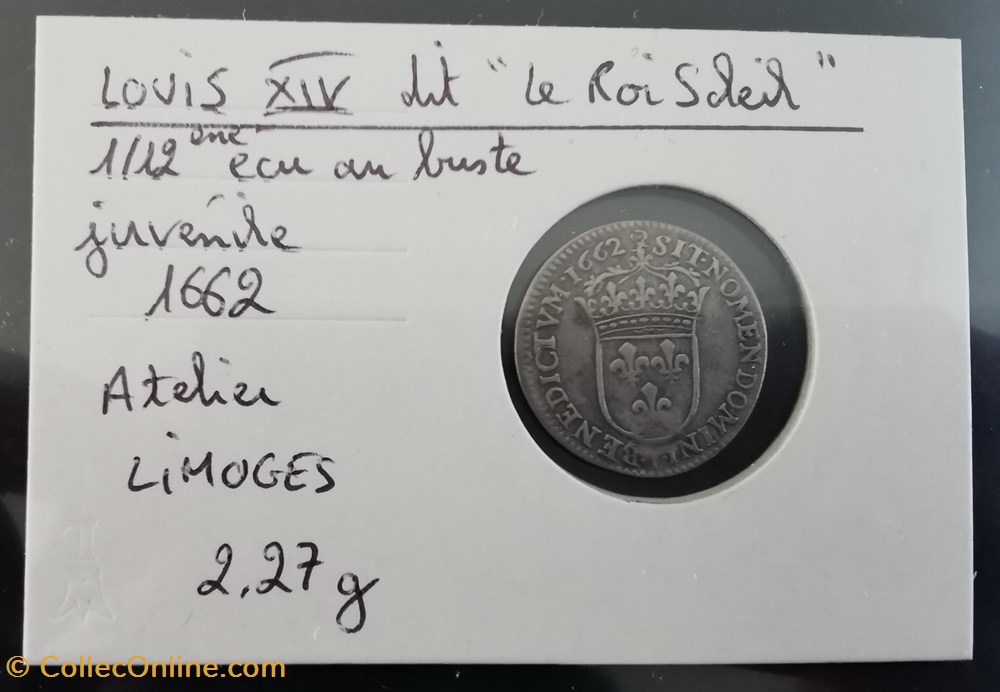 LOUIS XIV dit "Le Roi Soleil"
1/12ème ecu au buste
juvénile
1662
Atelier
LIMOGES
2,27 g
·1662 SIT·NOMEN·DOMINI·BENEDICTVM
© CollecOnline.com